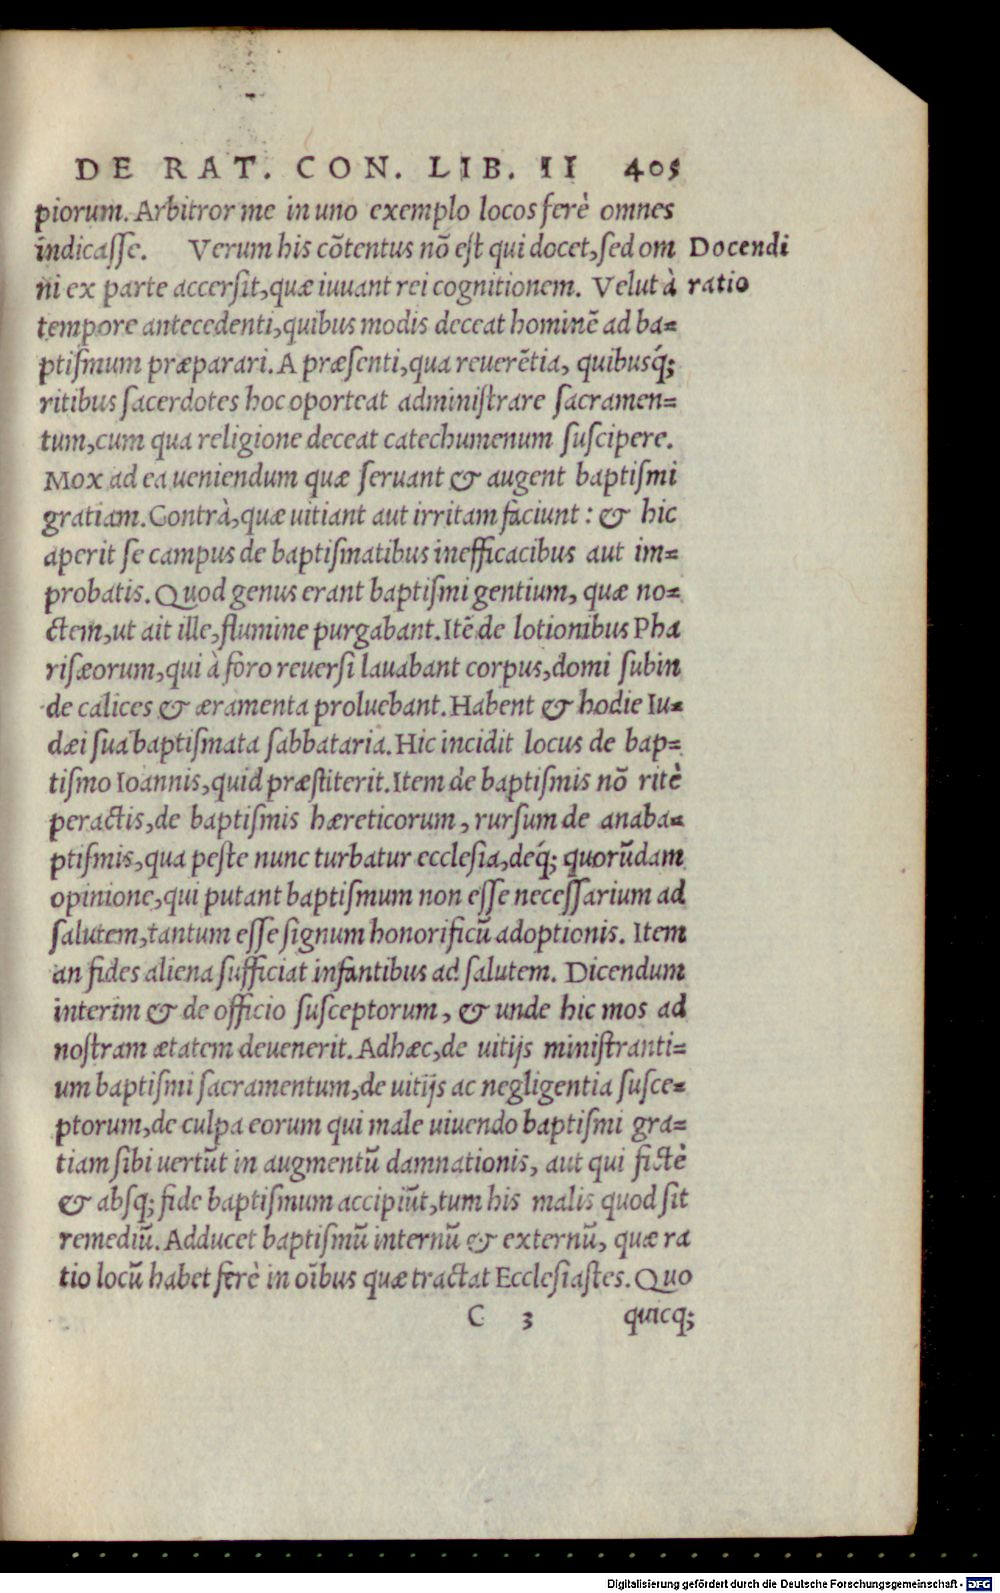 DE RAT. CON. LIB. II 405
piorum. Arbitror me in uno exemplo locos ferè omnes
indicaſſe. Verum his cõtentus nõ eſt qui docet, ſed om
Docendi
ni ex parte accerſit, quæ iuuant rei cognitionem. Velut à
ratio
tempore antecedenti, quibus modis deceat hominẽ ad ba=
ptiſmum præparari. A præſenti, qua reuerẽtia, quibusq́;
ritibus ſacerdotes hoc oporteat adminiſtrare ſacramen=
tum, cum qua religione deceat catechumenum ſuſcipere.
Mox ad ea ueniendum quæ ſeruant & augent baptiſmi
gratiam. Contrà, quæ uitiant aut irritam faciunt: & hic
aperit ſe campus de baptiſmatibus inefficacibus aut im=
probatis. Quod genus erant baptiſmi gentium, quæ no=
ctem, ut ait ille, flumine purgabant. Itẽ de lotionibus Pha
riſæorum, qui à foro reuerſi lauabant corpus, domi ſubin
de calices & æramenta proluebant. Habent & hodie Iu=
dæi ſua baptiſmata ſabbataria. Hic incidit locus de bap=
tiſmo Ioannis, quid præſtiterit. Item de baptiſmis nõ ritè
peractis, de baptiſmis hæreticorum, rurſum de anaba=
ptiſmis, qua peſte nunc turbatur eccleſia, deq́; quorũdam
opinione, qui putant baptiſmum non eſſe neceſſarium ad
ſalutem, tantum eſſe ſignum honorificũ adoptionis. Item
an fides aliena ſufficiat infantibus ad ſalutem. Dicendum
interim & de officio ſuſceptorum, & unde hic mos ad
noſtram ætatem deuenerit. Adhæc, de uitijs miniſtranti=
um baptiſmi ſacramentum, de uitijs ac negligentia ſuſce=
ptorum, de culpa eorum qui male uiuendo baptiſmi gra=
tiam ſibi uertũt in augmentũ damnationis, aut qui fictè
& abſq; fide baptiſmum accipiũt, tum his malis quod ſit
remediũ. Adducet baptiſmũ internũ & externũ, quæ ra
tio locũ habet ferè in oĩbus quæ tractat Eccleſiaſtes. Quo
C 3 quicq;
Digitalisierung gefördert durch die Deutsche Forschungsgemeinschaft - DFG